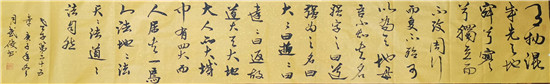 有物混
成先天地
生寂兮寥
兮獨立而
不改周行
而不殆可
以為天地母
吾不知其名
強字之曰道
強為之名曰
大大曰逝逝
曰遠遠曰反故
道大天大地
大人亦大域
中有四大而
人居其一焉
人法地地法
天天法道道
法自然
老子第二十五章